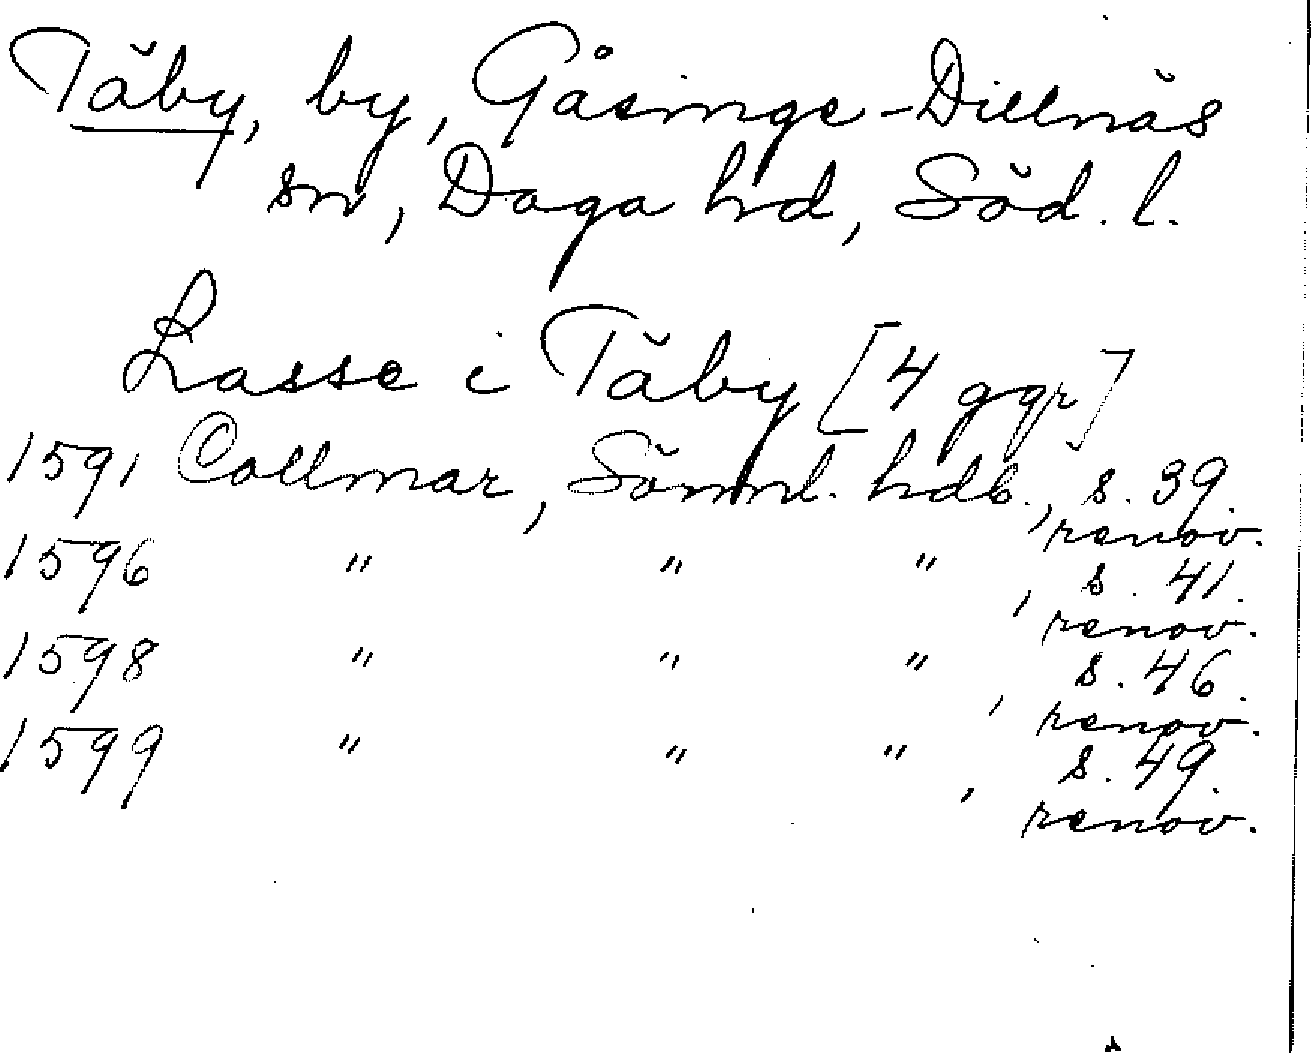 Täby, by, Gåsinge-Dillnäs
sn, Daga hd, Söd. l.
Lasse i Täby [4 ggr]
1591 Collmar, Sömml. hdb., s. 39.
renov.
1596 " " " , s. 41.
renov.
1598 " " " , s. 46.
renov.
1599 " " " , s. 49.
renov.